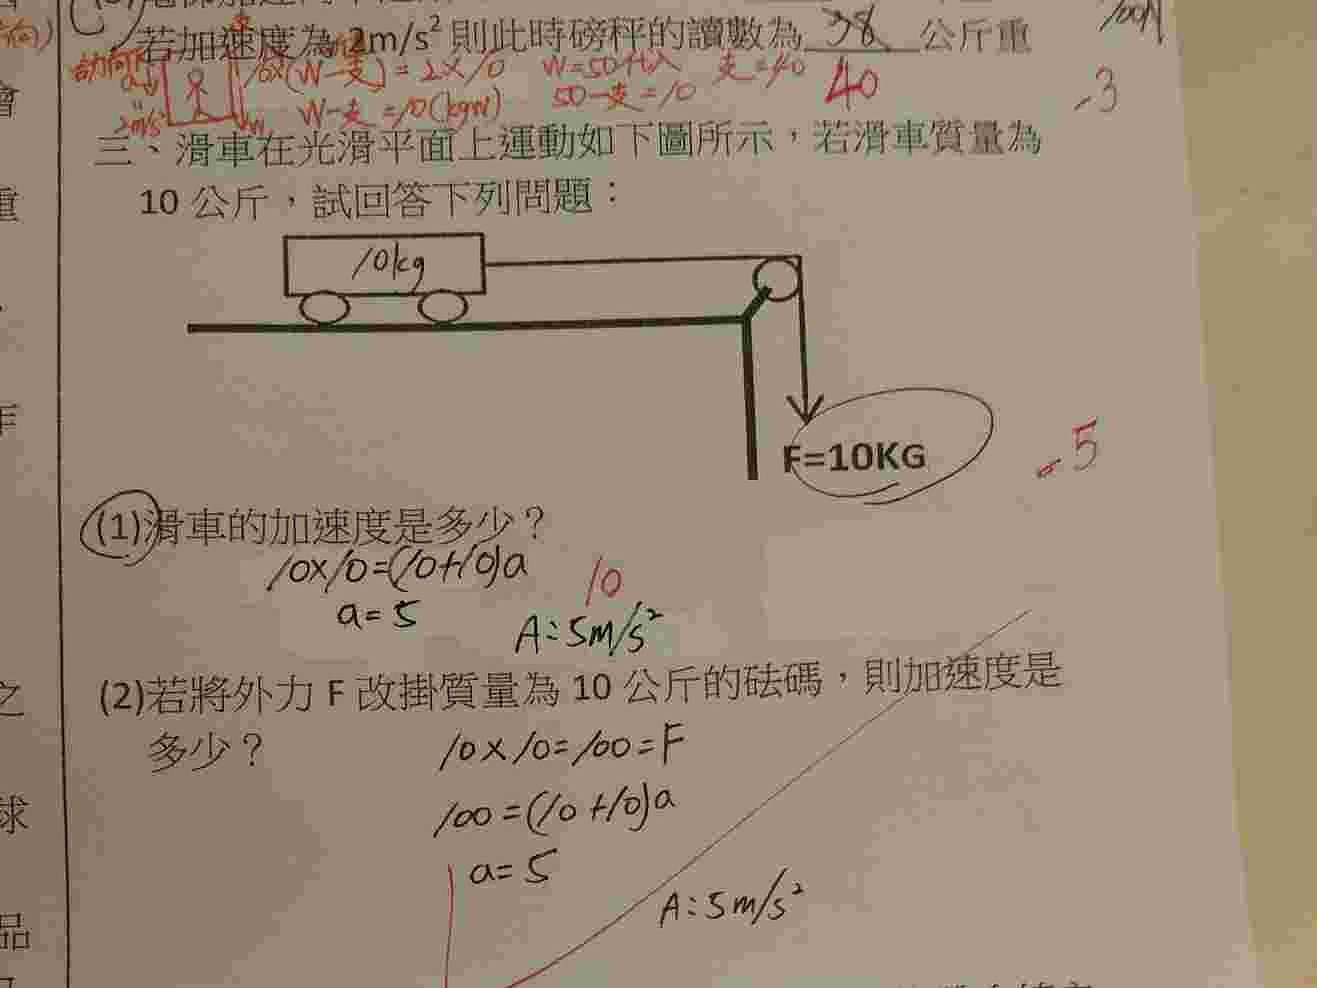 若加速度為 2m/s² 則此時磅秤的讀數為 38 公斤重
100N
10×(W-支)=2×10 W=50代入 支=40
40
-3
2m/s² W-支=10(kgw) 50-支=10
三、滑車在光滑平面上運動如下圖所示，若滑車質量為
10 公斤，試回答下列問題：
10kg
F=10KG
-5
(1)滑車的加速度是多少？
10×10=(10+10)a
10
a=5
A:5m/s²
(2)若將外力 F 改掛質量為 10 公斤的砝碼，則加速度是
多少？
10×10=100=F
100=(10+10)a
a=5
A:5m/s²
會
重
年
之
球
品